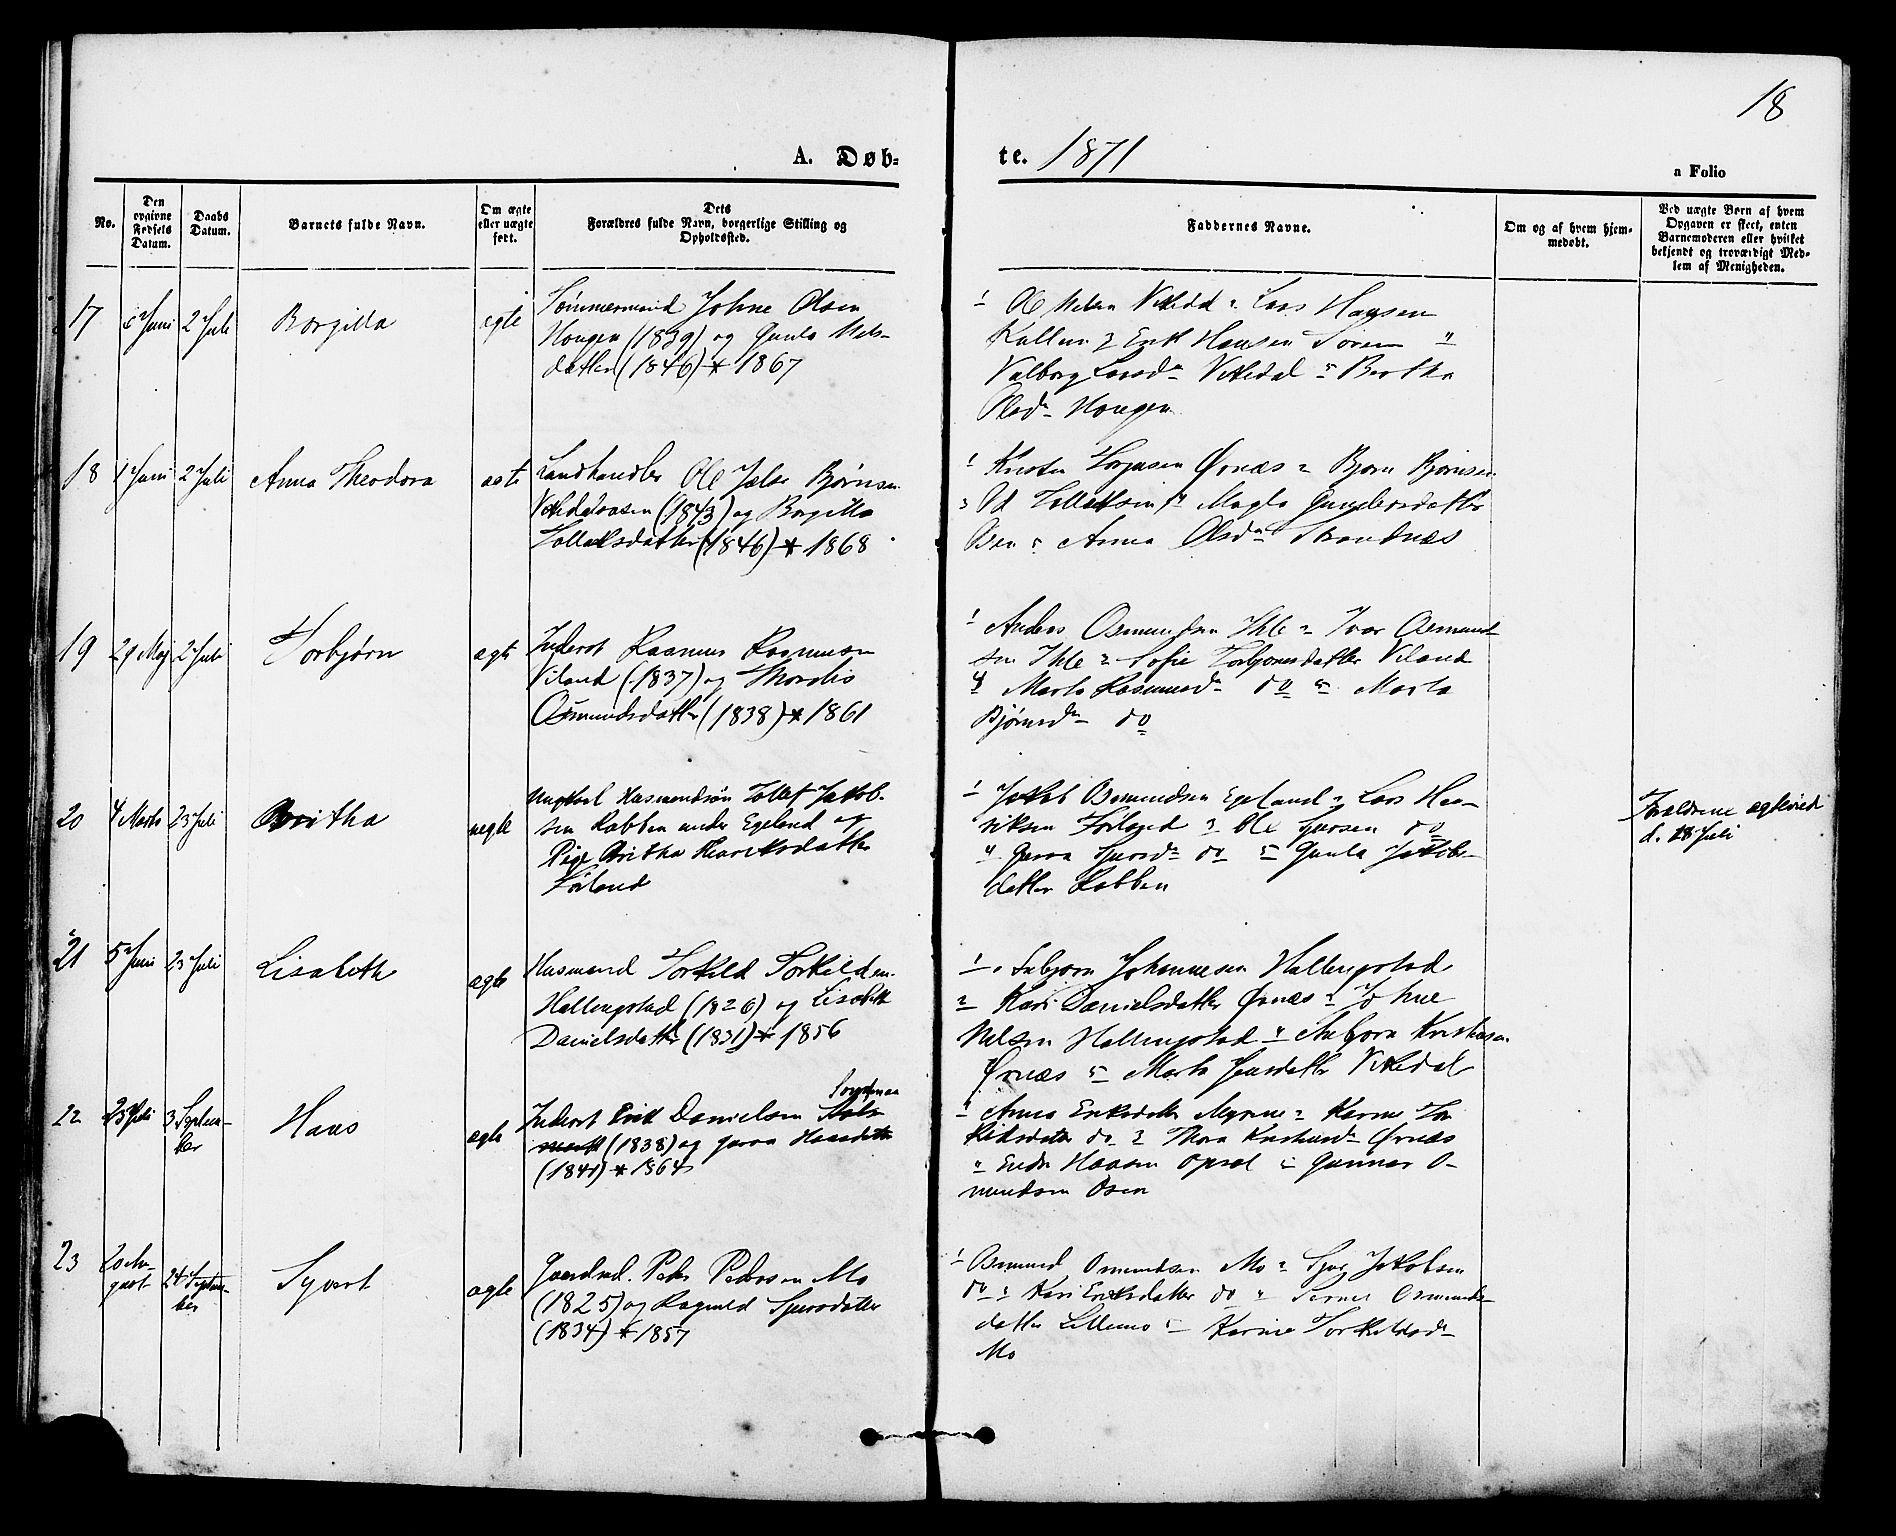 18
A. Døb=
te. 1871
a Folio
No.
Den
opgivne
Fødsels
Datum.
Daabs
Datum.
Barnets fulde Navn.
Om ægte
eller uægte
født.
Dets
Forældres fulde Navn, borgerlige Stilling og
Opholdssted.
Faddernes Navne.
Om og af hvem hjem-
medøbt.
Ved uægte Børn af hvem
Opgaven er skeet, enten
Barnemoderen eller hvilket
bekjendt og troværdigt Med-
lem af Menigheden.
17
Juni
2 Juli
Borgilla
egte
Tømmermand Johne Olsen
Hougen (1839) og Gunla Nels-
datter (1846) * 1867
1 Ole Nelsen Vikedal 2 Lars Hansen
3 Erik Hansen
Valborg Larsdr Vikedal 5 Bertha
Olsdr Hougen
18
1 Juni
2 Juli
Anna Theodora
egte
Landhandler Ole Jelse Bjørnsen
Vikedalsosen (1843) og Borgilla
Tollaksdatter (1846) * 1868
1 Knister Torgusen Ørnæs 2 Bjørn Bjørnsen
3 Od Tollaksen 4 Magla Gundersdatter
Osen 5 Anna Olsdr Strandnæs
19
29 Maj
2 Juli
Torbjørn
egte
Inderst Rasmus Rasmusen
Viland (1837) og Thordis
Osmundsdatter (1838) * 1861
1 Anders Osmundsen Ihle 2 Ivar Osmund-
sen Ihle 3 Sofie Torbjornsdatter Viland
4 Marta Rasmusdr do 5 Marta
Bjørnsdr do
20
4 Marts
23 Juli
Britha
uegte
Ungkarl Husmandssøn Tollef Jakob-
sen Rabben under Egeland og
Pige Britha Henriksdatter
Førland
1 Jakob Osmundsen Egeland 2 Lars Hen-
riksen Førland 3 Ole Sjursen do
4 Guroa Sjursdr do 5 Gunla Jakobs-
datter Rabben
Forældrene egteviede
d. 18 Juli
21
5 Juni
23 Juli
Lisabeth
egte
Husmand Torkild Torkildsen
Hallingstad (1826) og Lisabeth
Danielsdatter (1831) * 1856
1 Johannesen Hallingstad
2 Kari Danielsdatter Ørnæs 3 Johne
Nelsen Hallingstad 4 Asbjorn Kristensen
Ørnæs 5 Marta Jensdatter Vikedal
22
23 Juli
3 Septem-
ber
Haus
egte
Inderst Erik Danielsen
(1838) og Guroa Hansdatter
(1841) * 1864
1 Anna Eriksdatter Myrene 2 Karine Tor-
kildsdatter do 3 Thora Kristiansdr Ørnæs
4 Endre Hansen Opsal 5 Gunnar O-
mundsen Osen
23
20 Au-
gust
24 Septem-
ber
Syvert
egte
Gaardmd. Peder Pedersen Mo
(1825) og Ragnild Sjursdatter
(1834) * 1857
1 Osmund Osmundsen Mo 2 Sjur Jakobsen
do 3 Kari Eriksdatter do 4 Serine Osmunds-
datter Lillemo 5 Karine Torkildsdr
Mo